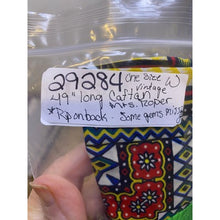 29284 One Size W
49" long Vintage
Caftan
Mrs. Roper
*Rip on back. Some gems missing